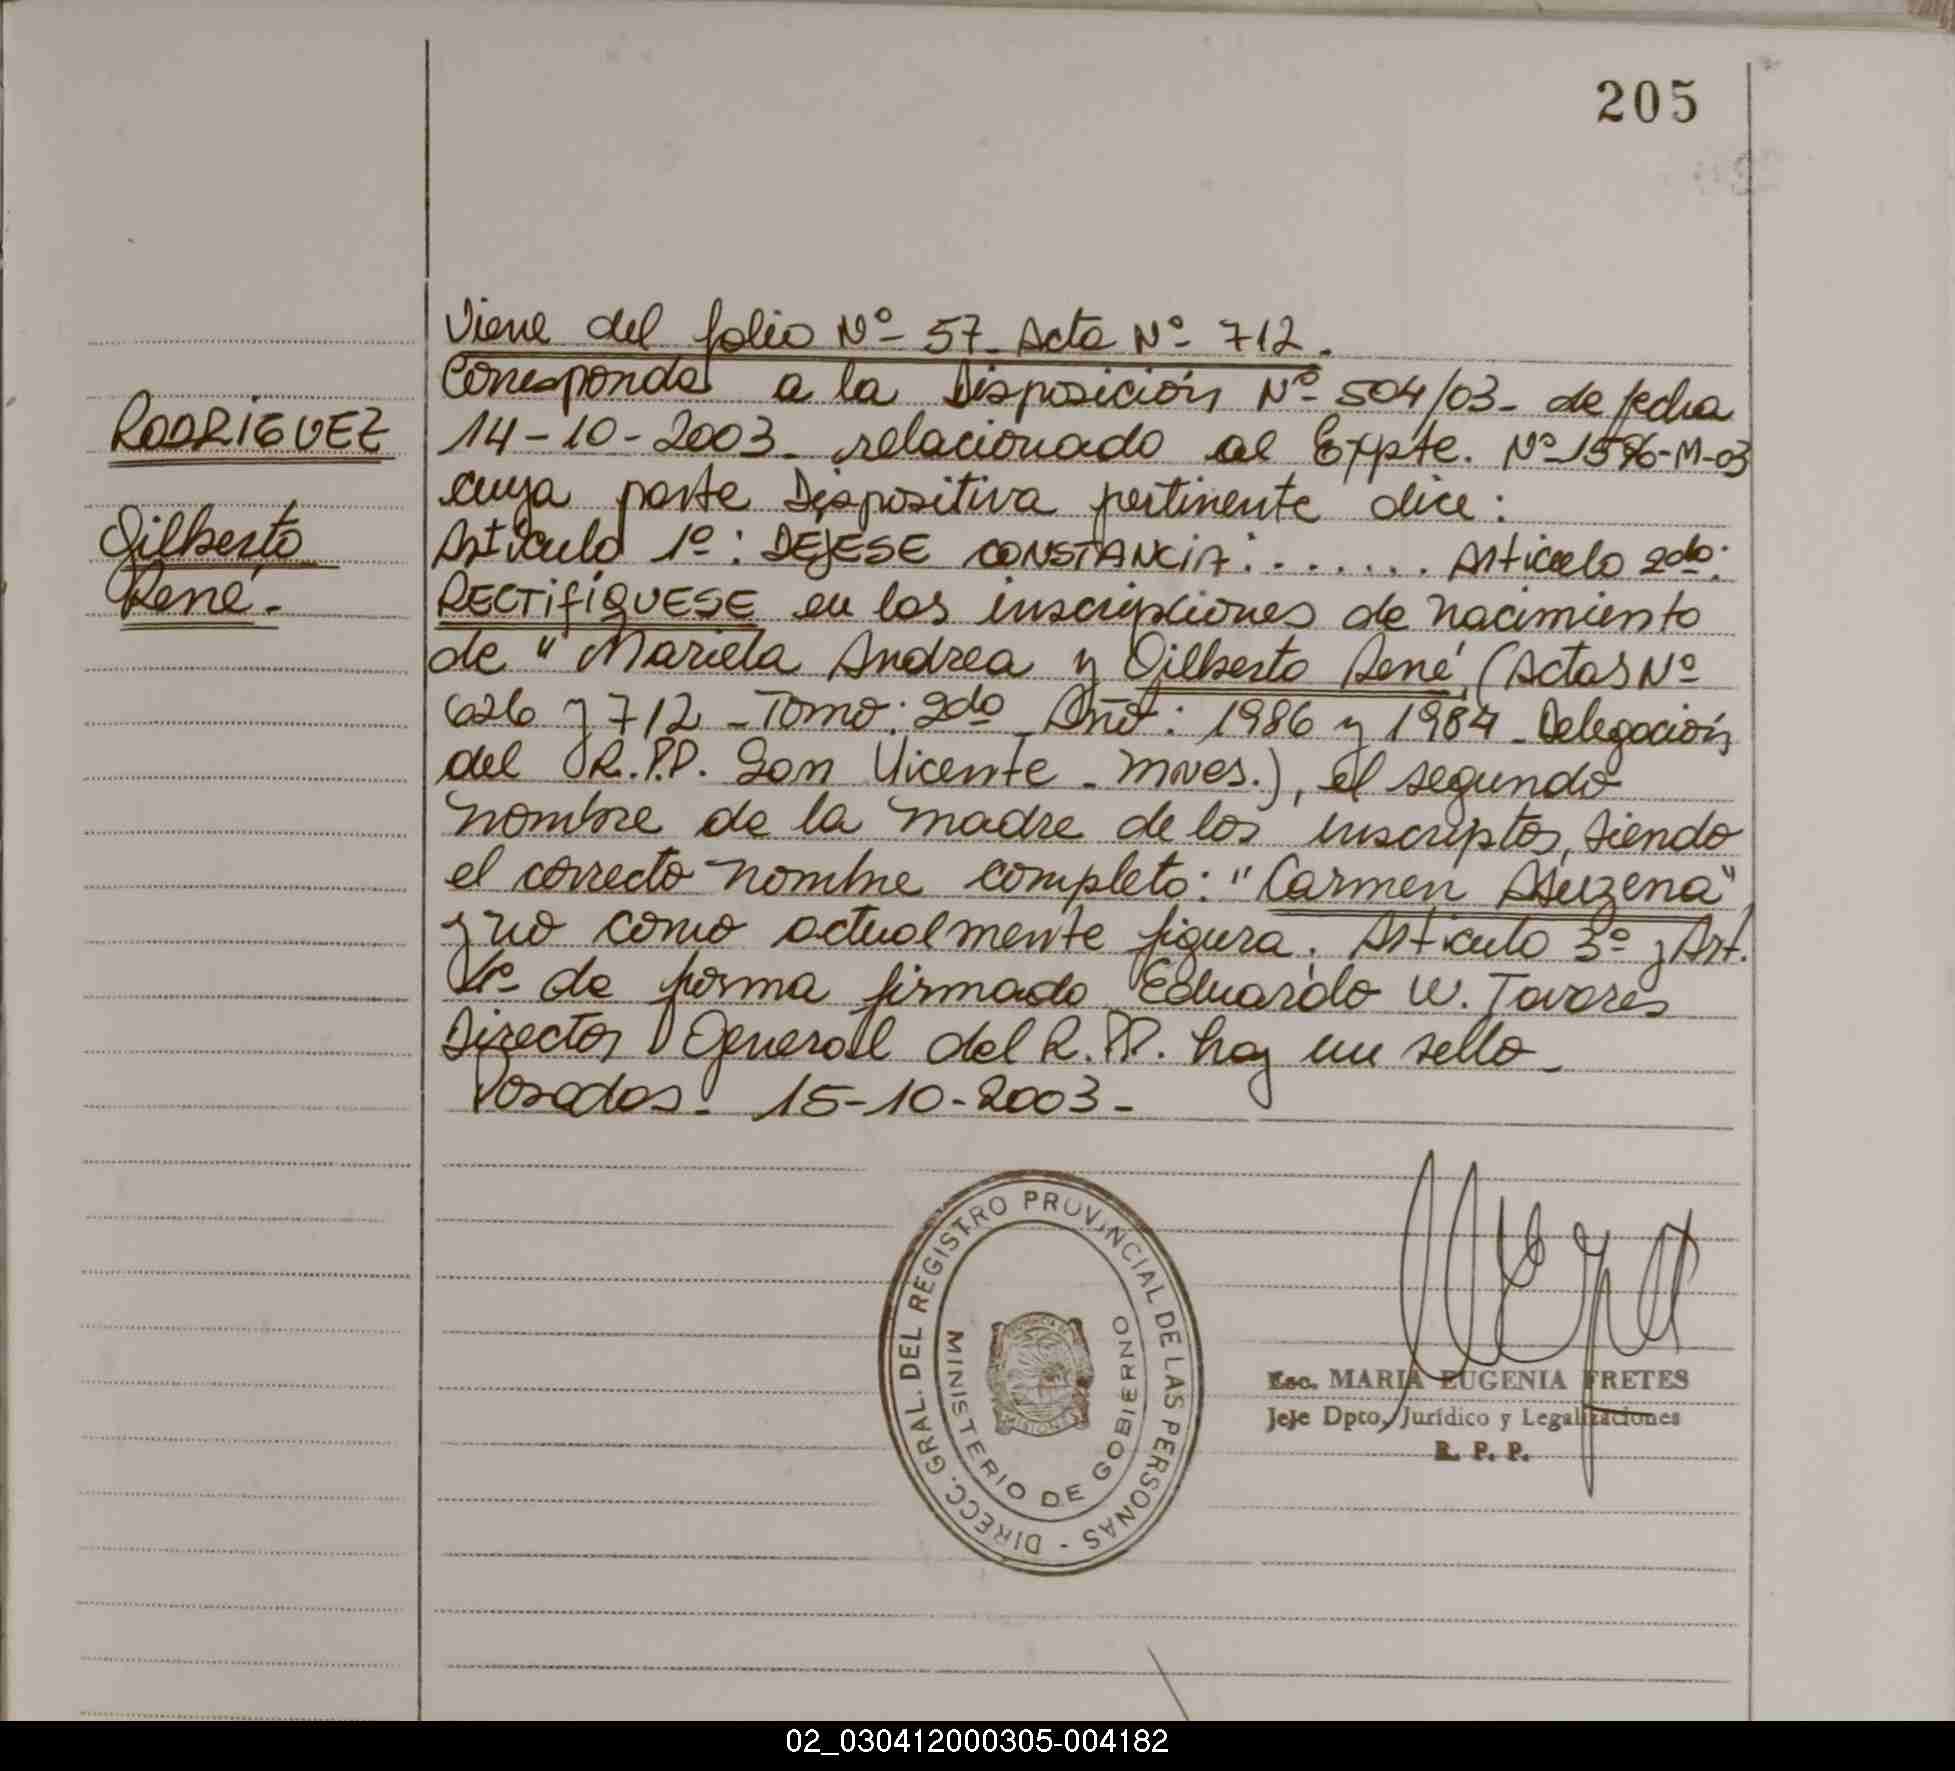 205
Viene del folio Nº 57 Acta Nº 712.
Corresponde a la Disposición Nº 504/03- de fecha
RODRIGUEZ
14-10-2003- relacionado al Expte. Nº 1596-M-03
cuya parte Dispositiva pertinente dice:
Gilberto
René.-
Artículo 1º: DEJESE CONSTANCIA:....... Articulo 2do:
RECTIFÍQUESE en las inscripciones de nacimiento
de "Mariela Andrea y Gilberto René, (Actas Nº
626 y 712 - Tomo: 2do Año: 1986 y 1984 - Delegación
del R.P.P. San Vicente - Mnes.), el segundo
nombre de la madre de los inscriptos, siendo
el correcto nombre completo: "Carmen Asuzena"
y no como actualmente figura. Articulo 3º y Art.
4º de forma firmado Eduardo W. Tavares
Director General del R.P.P. hay un sello-
Posadas. 15-10-2003-
DIRECC. GRAL. DEL REGISTRO PROVINCIAL DE LAS PERSONAS -
MINISTERIO DE GOBIERNO
Esc. MARIA EUGENIA FRETES
Jefe Dpto. Jurídico y Legalizaciones
R. P. P.
02_030412000305-004182